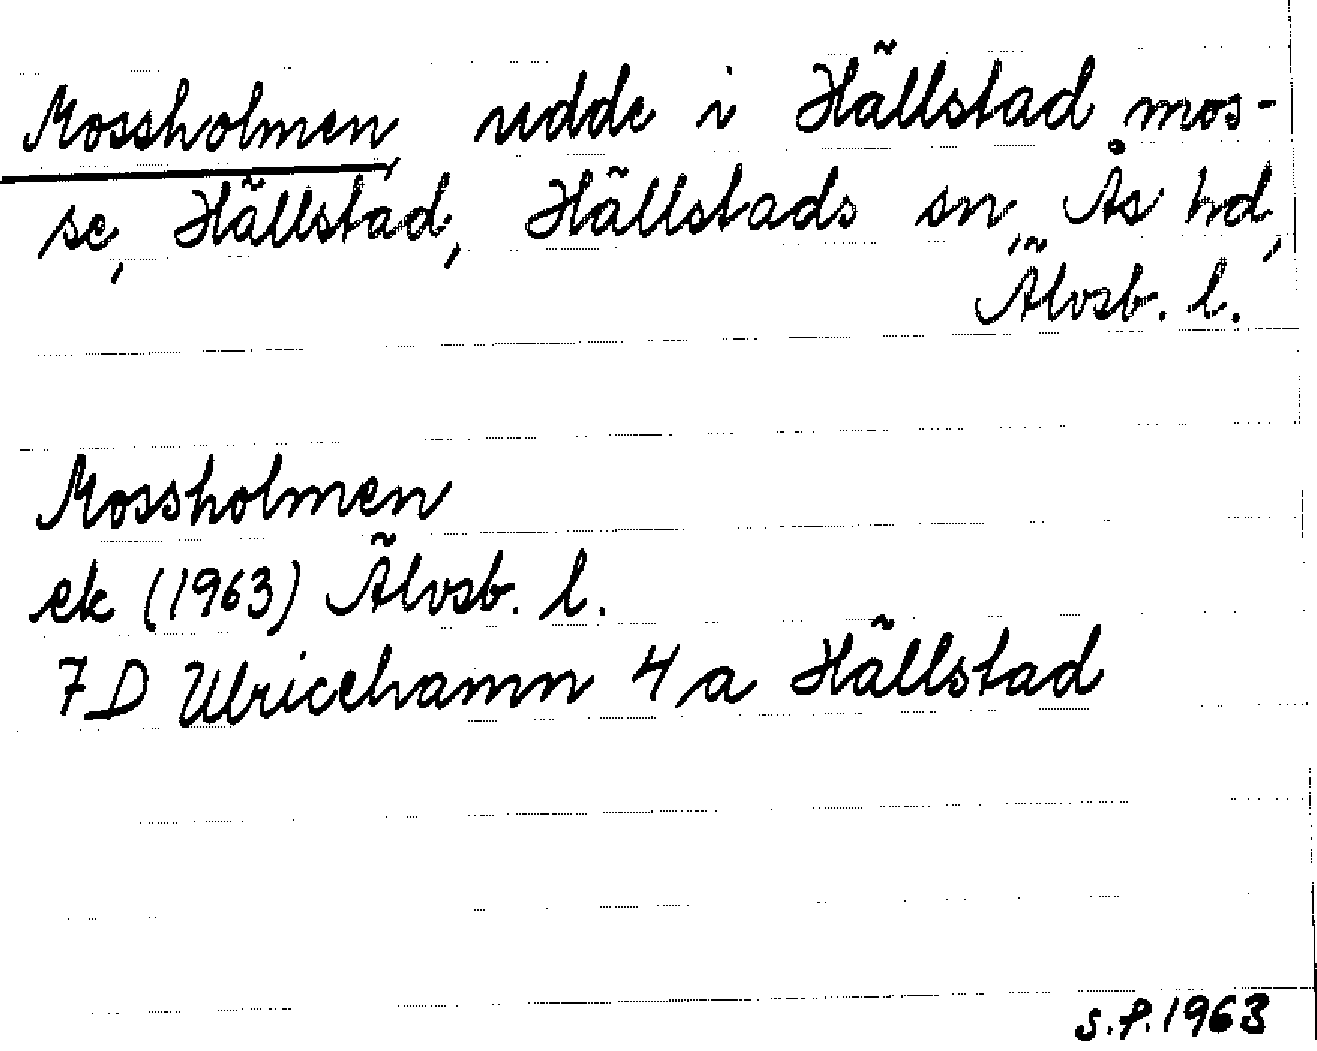 Mossholmen, udde i Hällstad mos-
se, Hällstad, Hällstads sn, Ås hd,
Älvsb. l.
Mossholmen
ek (1963) Älvsb. l.
7D Ulricehamn 4a Hällstad
S.P. 1963